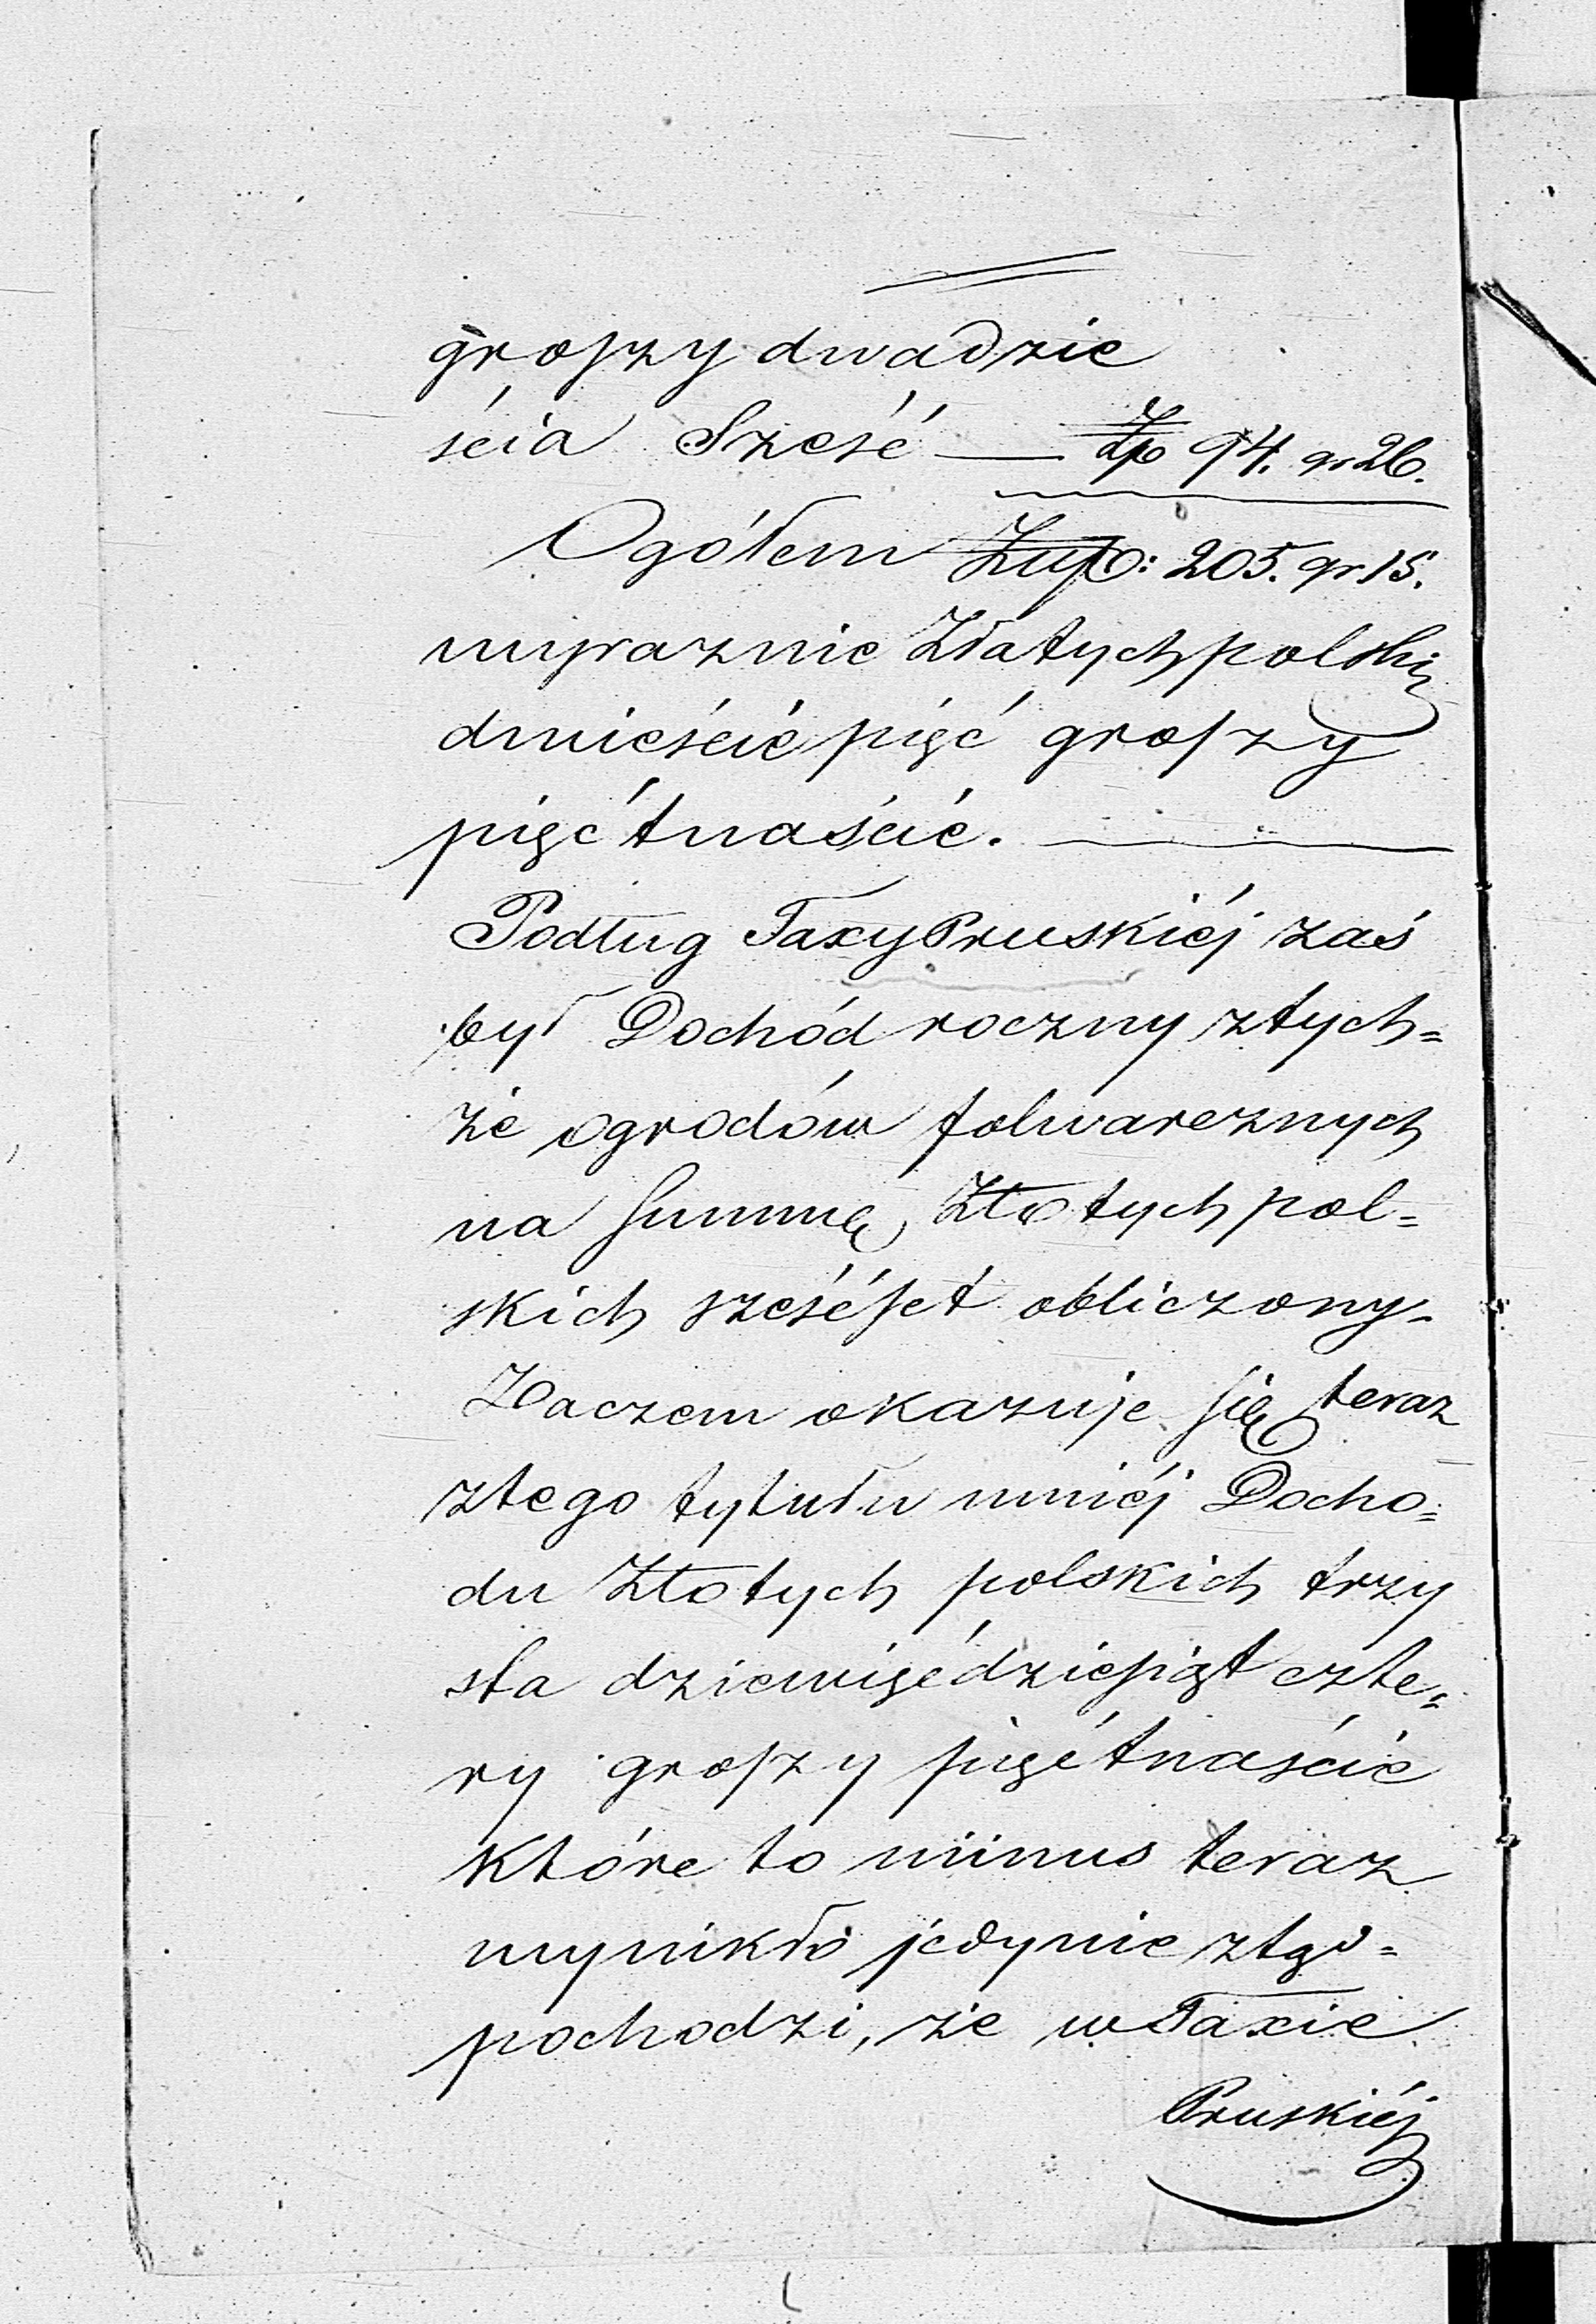 groszy dwadzie
ścia Sześć — Złp 94. gr 26.
Ogółem Złp: 205. gr. 15.
wyraznie Złotych polskich
dwieście pięć groszy
pięćtnaście.
Podług Taxy Pruskiéj zaś
był Dochód roczny ztych=
że ogrodów folwarcznych
na Summę Złotych pol=
skich sześćset obliczony.
Zaczem okazuje się teraz
ztego tytułu mniéj Docho=
du Złotych polskich trzy
sta dziewięćdziesiąt czte=
ry groszy pięćtnaście
które to minus teraz
wynikło jedynie ztąd=
pochodzi, że w Taxie
Pruskiéj